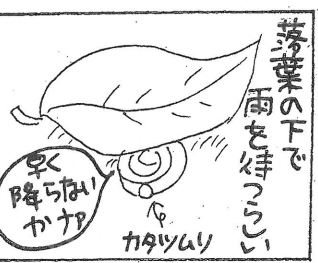 落葉の下で
雨を待つらしい
早く
降らない
かナァ
カタツムリ